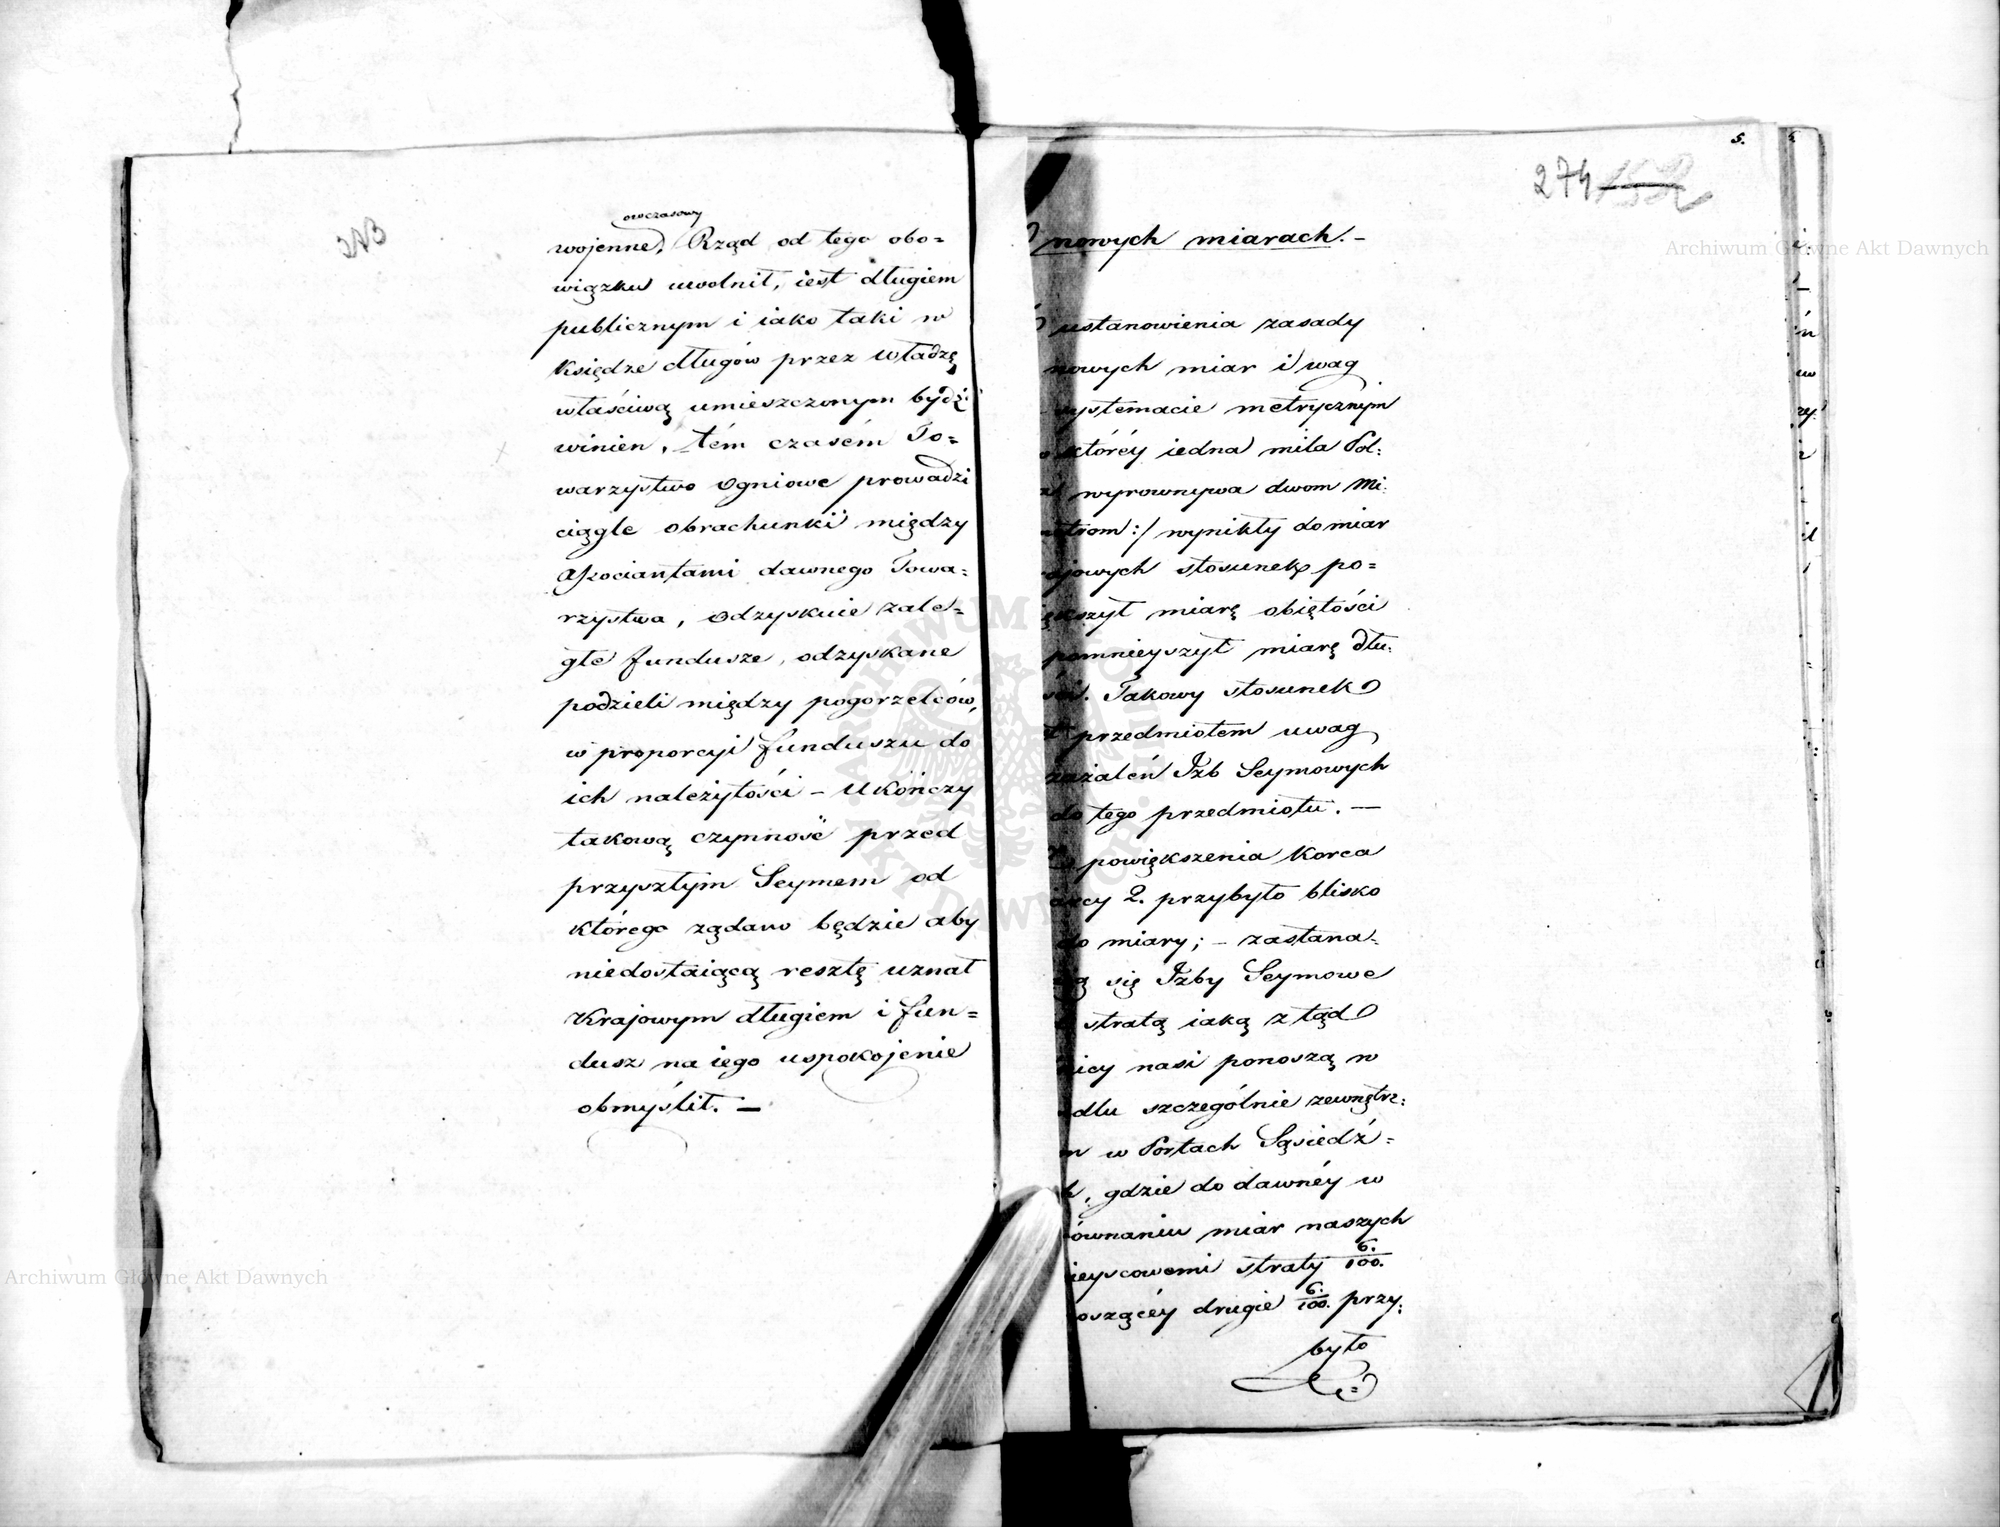 273
owczasowy
wojenne, Rząd od tego obo=
wiązku uwolnił, iest długiem
publicznym i iako taki w
Księdze długów przez Władzę
właściwą umieszczonym bydź
winien, tém czasém To=
warzystwo Ogniowe prowadzi
ciągle obrachunki między
Associantami dawnego Towa=
rzystwa, odzyskuie zale=
głe fundusze, odzyskane
podzieli między pogorzelców,
w proporcyi funduszu do
ich należytości – Ukończy
takową czynność przed
przyszłym Seymem od
którego żądano będzie aby
niedostaiącą resztę uznał
Krajowym długiem i fun=
dusz na iego uspokojenie
obmyślił. —
5.
274 152
nowych miarach. –
ustanowienia zasady
nowych miar i wag
systemacie metrycznym
któréy iedna mila Pol:
wyrownywa dwom Mi:
trom :/ wynikły do miar
jowych stosunek po=
kszył miarę obiętości
pomnieyszył miarę dłu:
Takowy stosunek
przedmiotem uwag
zażaleń Izb Seymowych
do tego przedmiotu. —
powiększenia Korca
2. przybyło blisko
do miary; – zastana=
się Izby Seymowe
stratą iaką z tąd
nicy nasi ponoszą w
dlu szczególnie zewnętrz:
m w Portach Sąsiedź=
gdzie do dawnéy w
ównaniu miar naszych
ieyscowemi straty 6./100.
oszącéy drugie 6./100. przy:
było
Archiwum Główne Akt Dawnych
Archiwum Główne Akt Dawnych
ARCHIWUM GŁÓWNE AKT DAWNYCH